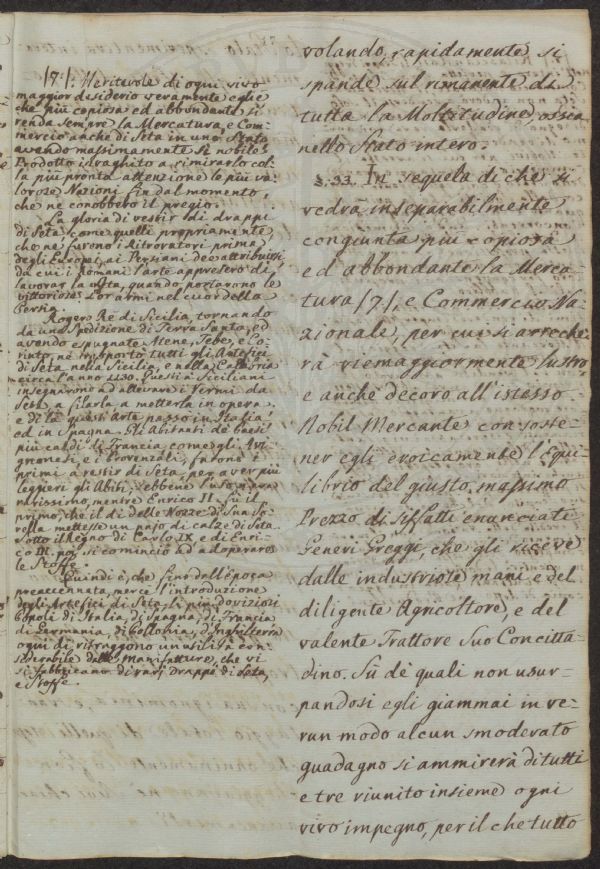 /7./. Meritevole di ogni vivo
maggior desiderio veramente egli è
che più copiosa ed abbondante si
renda sempre la Mercatura, e Com-
mercio anche di Seta in uno Stato
avendo massimamente sì nobile
Prodotto invaghito a rimirarlo col-
la più pronta attenzione le più va-
lorose Nazioni fin dal momento,
che ne conobbero il pregio.
La gloria di vestir di drappi
di Seta, come quelli propriamente
che ne furono i Ritrovatori prima
degli Europei, ai Persiani dee attribuirsi
da cui i Romani l'arte appresero di
lavorar la Seta, quando portarono le
vittoriose Lor armi nel cuor della
Persia.
Rogero Re di Sicilia, tornando
da una Spedizione di Terra Santa, ed
avendo espugnate Atene, Tebe, e Co-
rinto, ne trasportò tutti gli Artefici
di Seta nella Sicilia, e nella Calabria
circa l'anno 1130. Questi i Siciliani
insegnarono ad allevare i Vermi da
Seta, a filarla, a metterla in opera,
e di là quest'Arte passò in Italia,
ed in Spagna. Gli Abitanti de' paesi
più caldi di Francia come gli Avi-
gnonesi, e i Provenzali, furono i
primi a vestir di Seta, per aver più
leggieri gli Abiti, sebbene l'uso n'era
rarissimo, mentre Enrico II. fù il
primo, che il dì delle Nozze di Sua So-
rella mettesse un pajo di calze di Seta.
Sotto il Regno di Carlo IX, e di Enri-
co III. poi si cominciò ad adoperarne
le Stoffe.
Quindi è, che fino dall'Epoca
preaccennata, mercè l'introduzione
degli Artefici di Seta, li più doviziosi
Popoli di Italia, di Spagna, di Francia
di Germania, di Pollonia, d'Inghilterra
ogni dì ritraggono un utilità con-
siderabile dalle Manifatture, che vi
si fabbricano di varj Drappi di Seta,
e Stoffe.
volando, rapidamente si
spande sul rimanente di
tutta la Moltitudine, ossia
nello Stato intero.
§. 33. In sequela di che si
vedrà inseparabilmente
congiunta più copiosa
ed abbondante la Merca-
tura /7./, e Commercio Na-
zionale, per cui si arreche-
rà viemaggiormente lustro
e anche decoro all'istesso
Nobil Mercante con soste-
ner egli eroicamente l'Equi-
librio del giusto massimo
Prezzo di siffatti enunciati
Generi Greggi, che gli riceve
dalle industriose mani e del
diligente Agricoltore, e del
valente Trattore Suo Concitta-
dino. Sù de' quali non usur-
pandosi egli giammai in ve-
run modo alcun smoderato
guadagno si ammirerà di tutti
e tre riunito insieme ogni
vivo impegno, per il che tutto